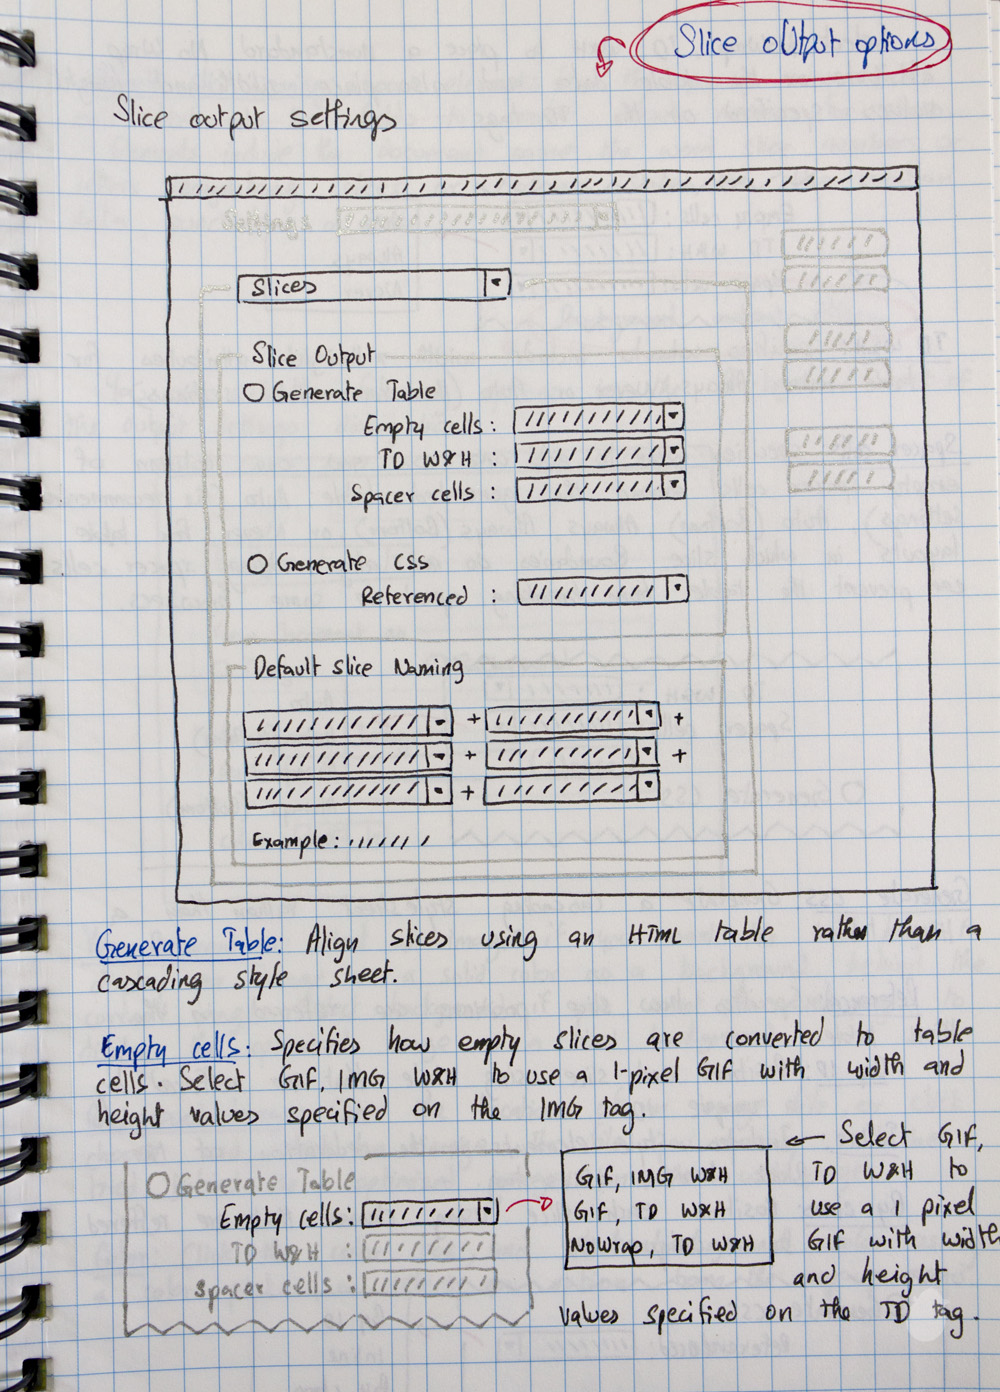 Slice output options
Slice output settings
Slices
Slice Output
Generate Table
Empty cells:
TD W&H :
Spacer cells :
Generate CSS
Referenced :
Default slice Naming
+ +
+ +
+
Example:
Generate Table: Align slices using an HTML table rather than a
cascading style sheet.
Empty cells: Specifies how empty slices are converted to table
cells. Select GIF, IMG W&H to use a 1-pixel GIF with width and
height values specified on the IMG tag.
Generate Table
Empty cells:
TD W&H :
Spacer cells :
GIF, IMG W&H
GIF, TD W&H
NoWrap, TD W&H
← Select GIF,
TD W&H to
use a 1 pixel
GIF with width
and height
values specified on the TD tag.